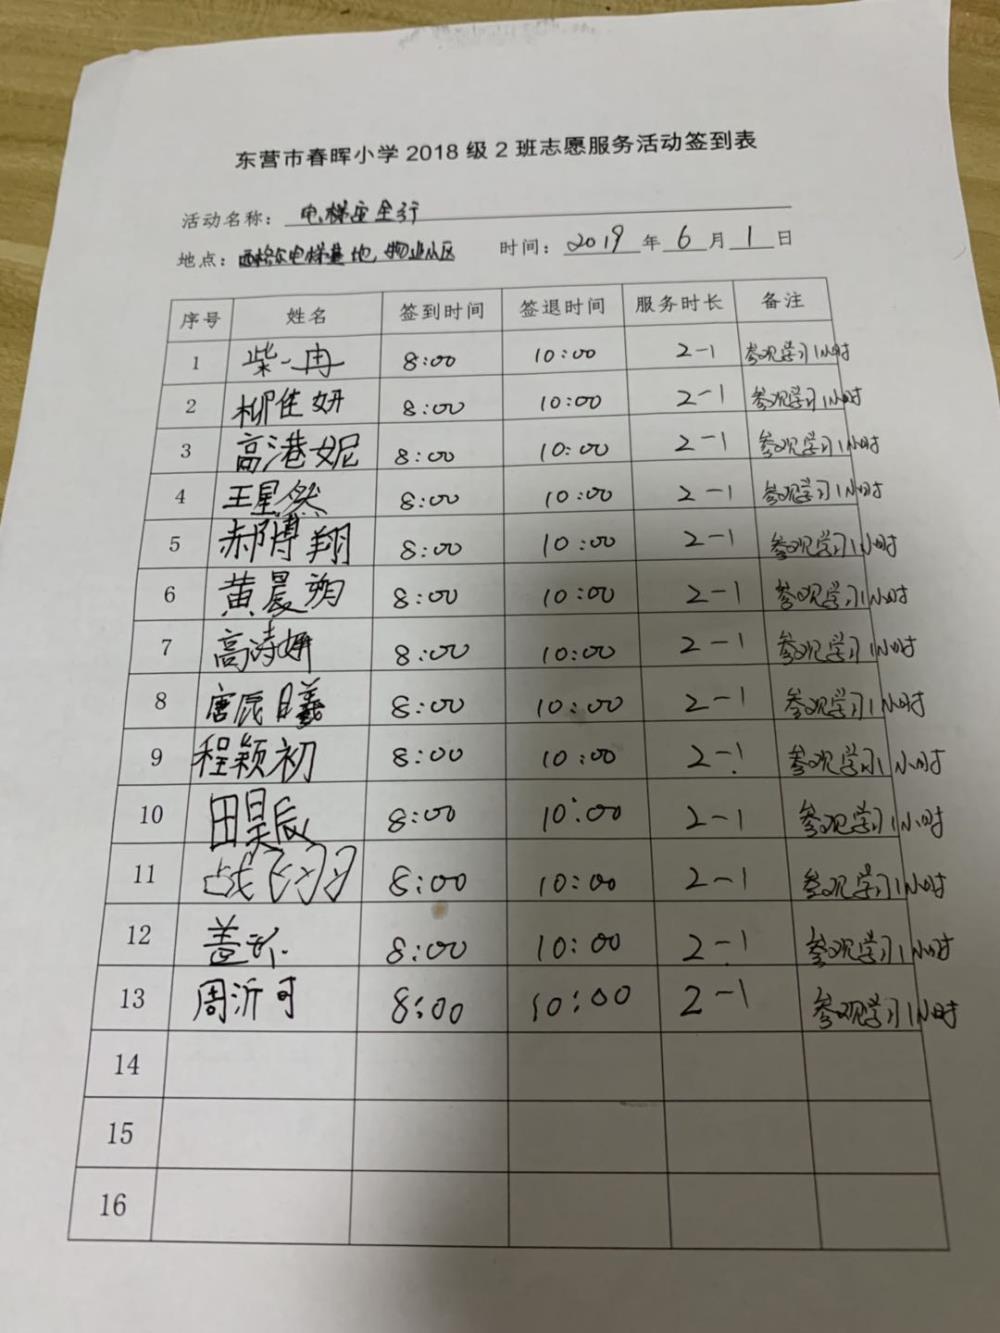 东营市春晖小学2018级2班志愿服务活动签到表
活动名称：电梯安全行
地点：西格尔电梯基地，物业小区 时间：2019年6月1日
序号 姓名 签到时间 签退时间 服务时长 备注
1 柴一冉 8:00 10:00 2-1 参观学习1小时
2 柳佳妍 8:00 10:00 2-1 参观学习1小时
3 高港妮 8:00 10:00 2-1 参观学习1小时
4 王星然 8:00 10:00 2-1 参观学习1小时
5 郝博翔 8:00 10:00 2-1 参观学习1小时
6 黄晨朔 8:00 10:00 2-1 参观学习1小时
7 高诗妍 8:00 10:00 2-1 参观学习1小时
8 唐辰曦 8:00 10:00 2-1 参观学习1小时
9 程颖初 8:00 10:00 2-1 参观学习1小时
10 田昊辰 8:00 10:00 2-1 参观学习1小时
11 8:00 10:00 2-1 参观学习1小时
12 8:00 10:00 2-1 参观学习1小时
13 周沂可 8:00 10:00 2-1 参观学习1小时
14
15
16